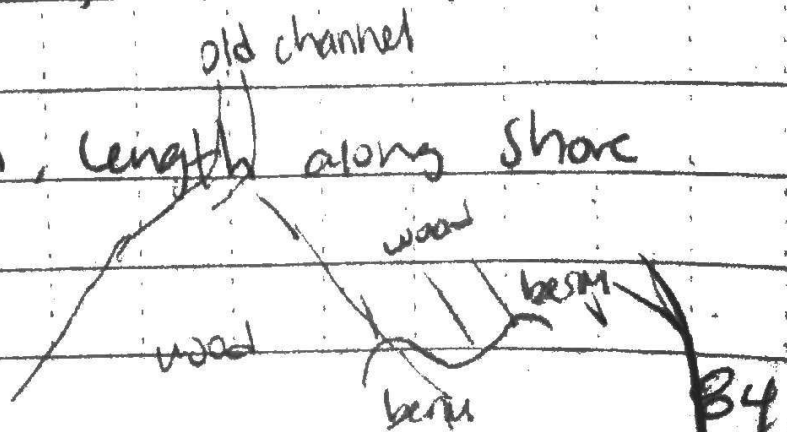 old channel
, Length along Shore
wood
berm
wood
berm
84